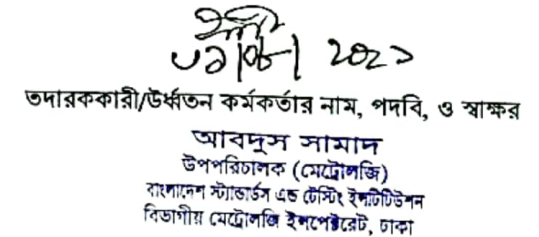 ২০২১
তদারককারী/উর্ধ্বতন কর্মকর্তার নাম, পদবি, ও স্বাক্ষর
আবদুস সামাদ
উপপরিচালক (মেট্রোলজি)
বাংলাদেশ স্ট্যান্ডার্ডস এন্ড টেস্টিং ইনস্টিটিউশন
বিভাগীয় মেট্রোলজি ইন্সপেক্টরেট, ঢাকা